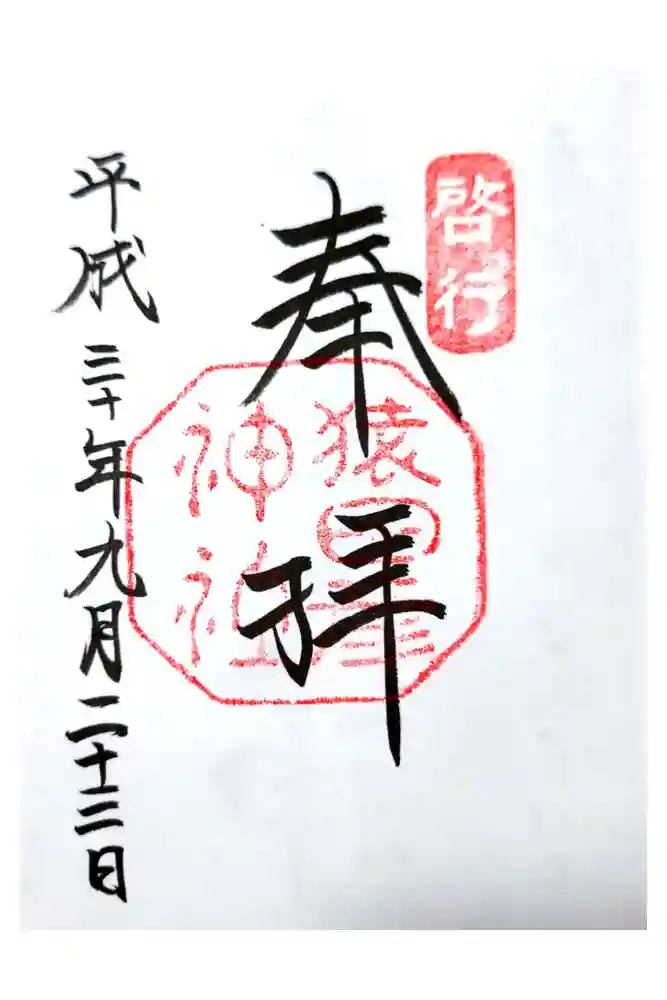 啓行
奉拝
猿田彦
神社
平成三十年九月二十三日